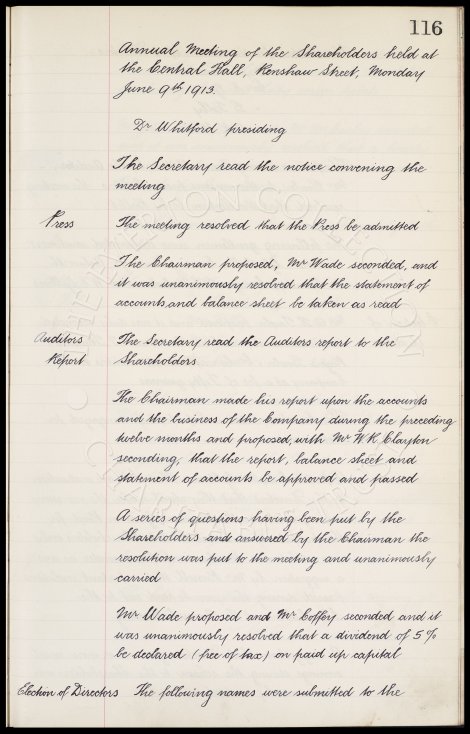 116
Annual Meeting of the Shareholders held at
the Central Hall, Renshaw Street, Monday
June 9th 1913.
Dr Whitford presiding
The Secretary read the notice convening the
meeting
Press The meeting resolved that the Press be admitted
The Chairman proposed, Mr Wade seconded, and
it was unanimously resolved that the statement of
accounts and balance sheet be taken as read
Auditors The Secretary read the Auditors report to the
Report Shareholders
The Chairman made his report upon the accounts
and the business of the Company during the preceding
twelve months and proposed, with Mr W.K. Clayton
seconding, that the report, balance sheet and
statement of accounts be approved and passed
A series of questions having been put by the
Shareholders and answered by the Chairman the
resolution was put to the meeting and unanimously
carried
Mr Wade proposed and Mr Coffey seconded and it
was unanimously resolved that a dividend of 5%
be declared (free of tax) on paid up capital
Election of Directors The following names were submitted to the